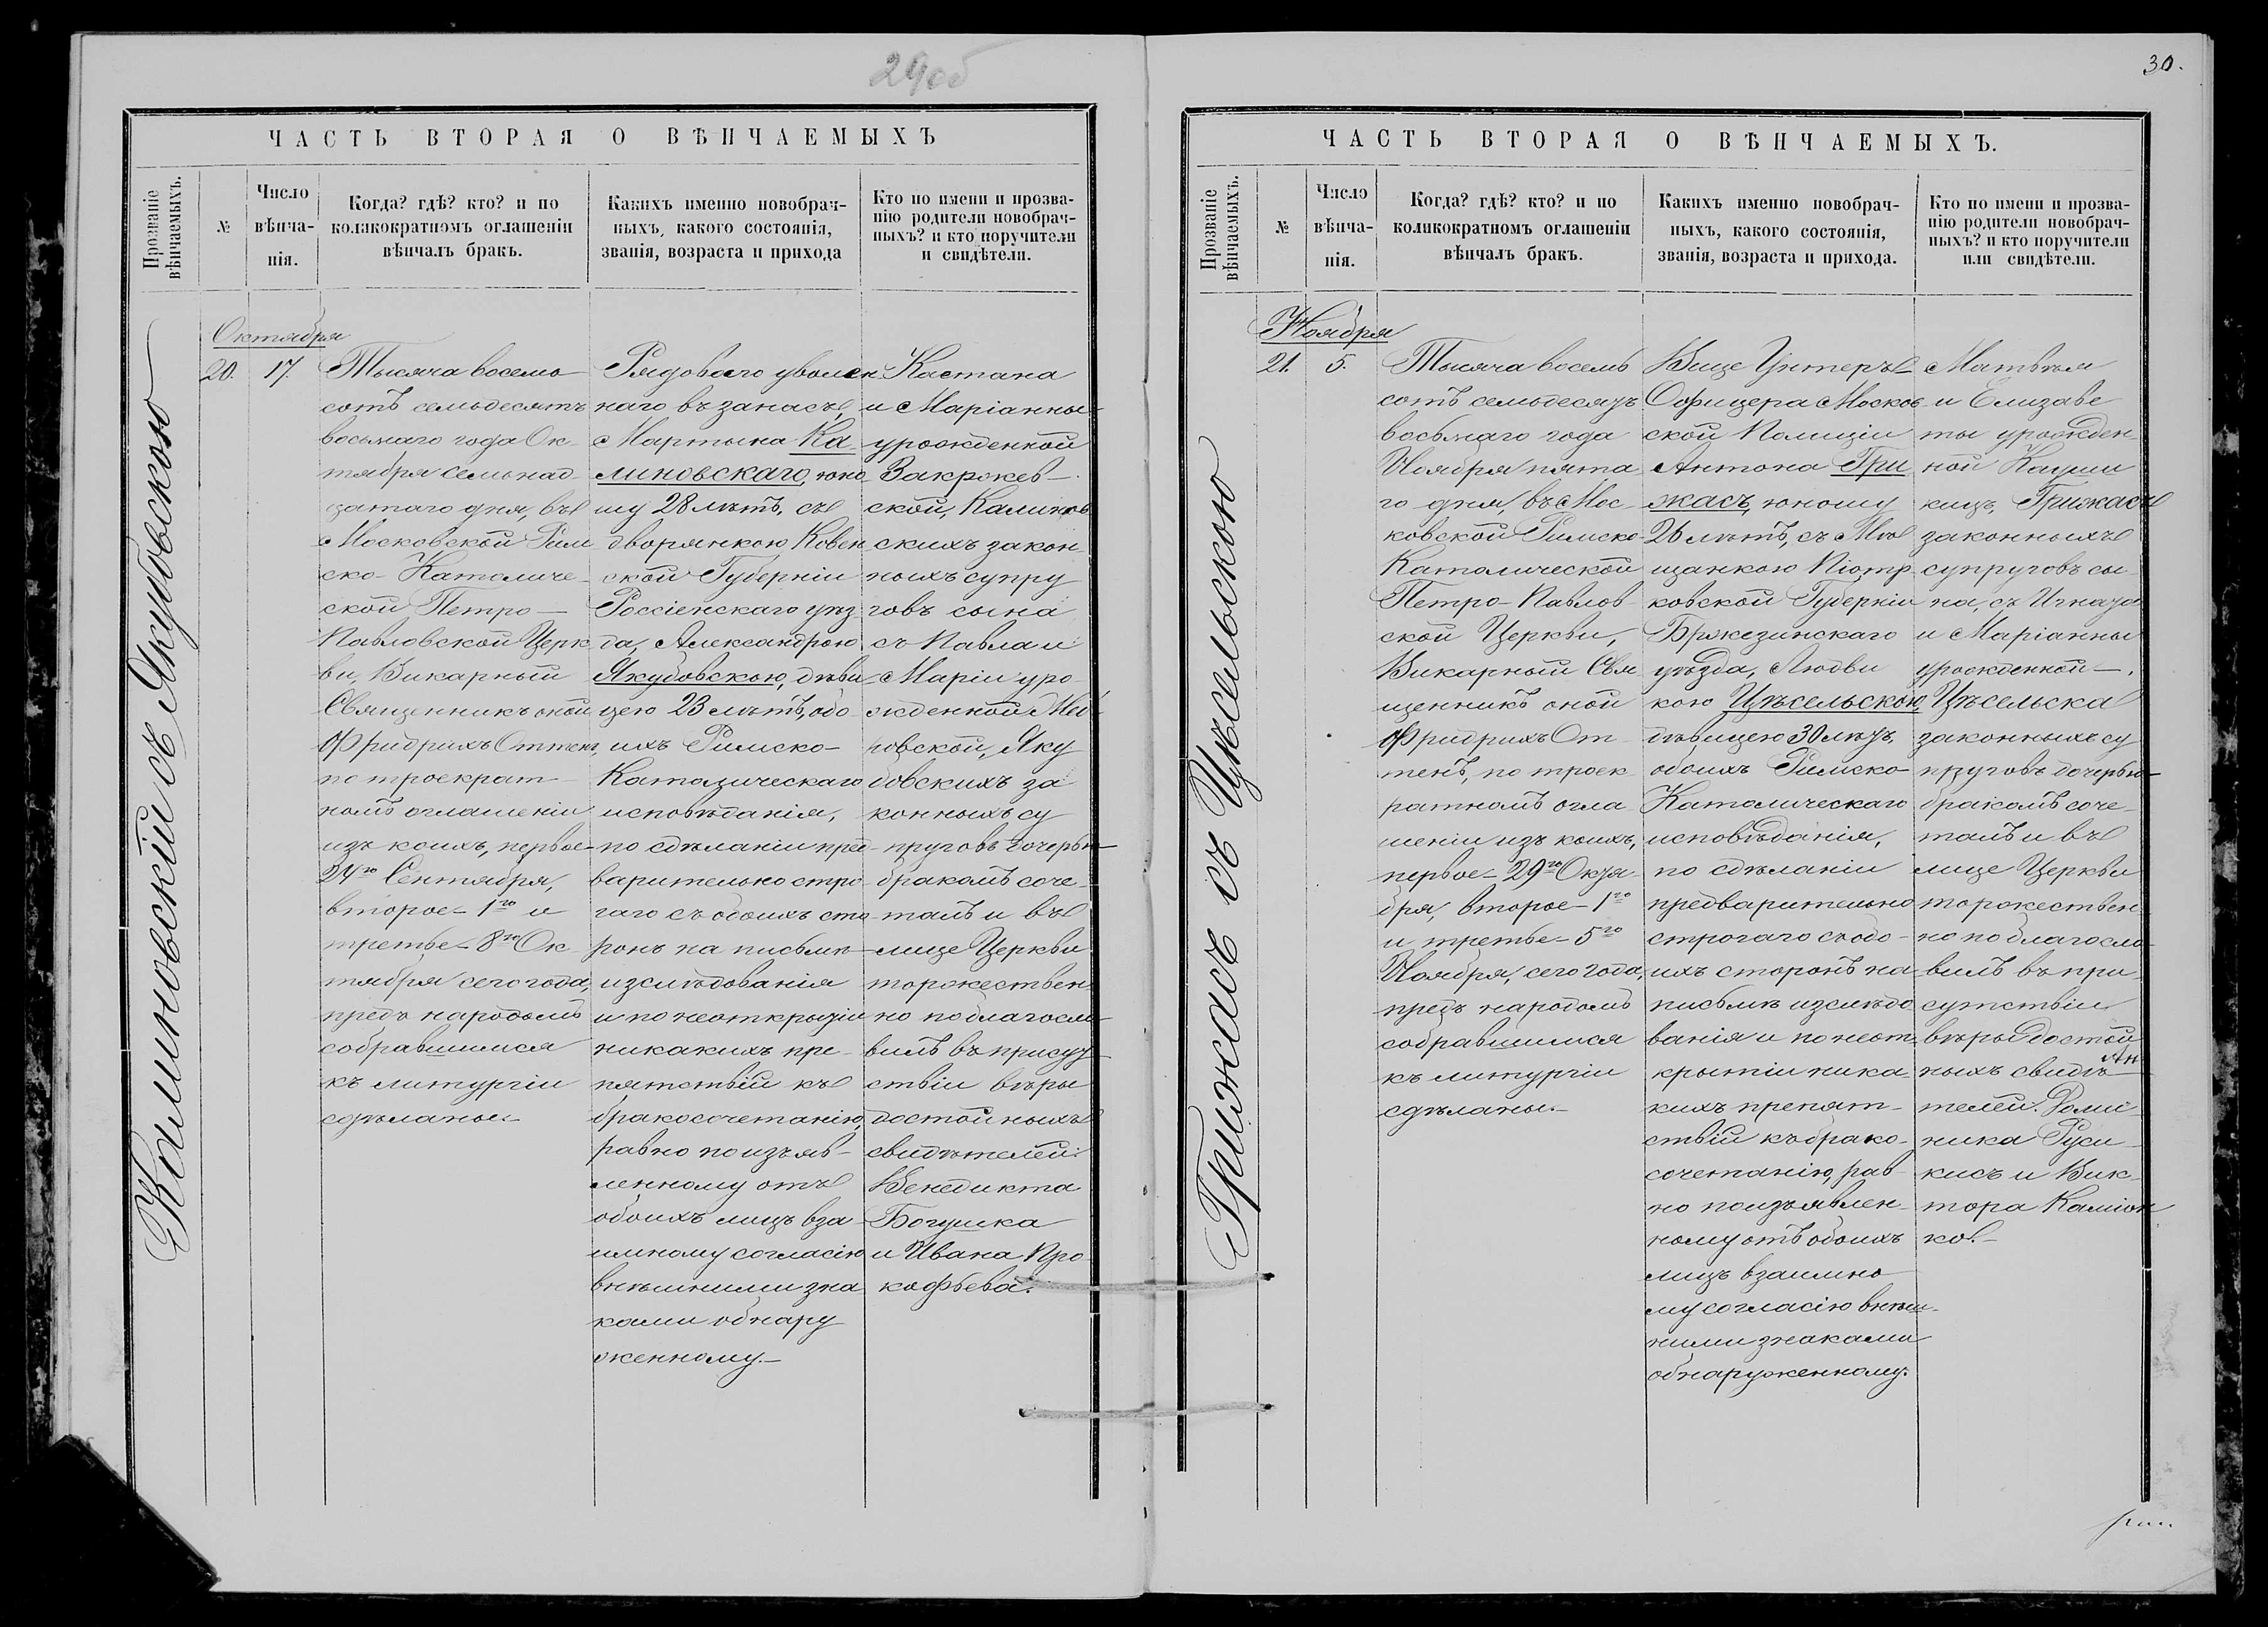 29об
ЧАСТЬ ВТОРАЯ О ВѢНЧАЕМЫХЪ
Прозваніе вѣнчаемыхъ.
№
Число вѣнча-
нія.
Когда? гдѣ? кто? и по
коликократномъ оглашеніи
вѣнчалъ бракъ.
Какихъ именно новобрач-
ныхъ, какого состоянія,
званія, возраста и прихода
Кто по имени и прозва-
нію родители новобрач-
ныхъ? и кто поручители
и свидѣтели.
Калиновскій съ Якубовскою
Октября
20.
17.
Тысяча восемь
сотъ семьдесятъ
восьмаго года Ок-
тября семьнад-
цатаго дня, въ
Московской Рим
ско-Католиче-
ской Петро-
Павловской Церк
ви, Викарный
Священникъ оной
Фридрихъ Оттенъ,
по троекрат-
номъ оглашеніи
изъ коихъ, первое-
24го Сентября,
второе- 1го и
третье- 8го Ок-
тября сего года,
предъ народомъ
собравшимся
къ литургіи
сдѣланы.-
Рядоваго уволен
наго въ запасъ,
Мартына Ка-
линовскаго, юно-
шу 28 лѣтъ, съ
дворянкою Ковен
ской Губерніи
Россіенскаго уѣз
да, Александрою
Якубовскою, дѣви-
цею 23 лѣтъ, обо-
ихъ Римско-
Католическаго
исповѣданія,
по сдѣланіи пред-
варительно стро-
гаго съ обоихъ сто-
ронъ на письмѣ
изслѣдованія
и по неоткрытіи
никакихъ пре-
пятствій къ
бракосочетанію,
равно по изъяв-
ленному отъ
обоихъ лицъ вза-
имному согласію
внѣшними зна
ками обнару
женному.-
Кастана
и Маріанны-
урожденной
Закржев-
ской, Калинов
скихъ закон
ныхъ супру
говъ сына
съ Павла и
Маріи уро-
жденной Мей-
ровской, Яку
бовскихъ за
конныхъ су
пруговъ дочерью-
бракомъ соче-
талъ и въ
лице Церкви
торжествен-
но поблагосло-
вилъ въ присут-
ствіи вѣры
достойныхъ
свидѣтелей:
Венедикта
Богушка
и Ивана Про
кофьева.
30.
ЧАСТЬ ВТОРАЯ О ВѢНЧАЕМЫХЪ.
Прозваніе вѣнчаемыхъ.
№
Число вѣнча-
нія.
Когда? гдѣ? кто? и по
коликократномъ оглашеніи
вѣнчалъ бракъ.
Какихъ именно новобрач-
ныхъ, какого состоянія,
званія, возраста и прихода.
Кто по имени и прозва-
нію родители новобрач-
ныхъ? и кто поручители
или свидѣтели.
Грижасъ съ Цѣсельскою
Ноября
21.
5.
Тысяча восемь
сотъ семьдесятъ
восьмаго года
Ноября пята
го дня, въ Мос-
ковской Римско-
Католической
Петро-Павлов-
ской Церкви,
Викарный Свя
щенникъ оной
Фридрихъ От-
тенъ, по троек
ратномъ огла
шеніи изъ коихъ,
первое- 29го Октя-
бря, второе- 1го
и третье- 5го
Ноября, сего года,
предъ народомъ
собравшимся
къ литургіи
сдѣланы.-
Вице Унтеръ-
Офицера Москов
ской Полиціи
Антона Гри
жасъ, юношу
26 лѣтъ, съ Мѣ
щанкою Піотр-
ковской Губерніи
Бржезинскаго
уѣзда, Людви
кою Цѣсельскою,
дѣвицею 30 лѣтъ,
обоихъ Римско-
Католическаго
исповѣданія,
по сдѣланіи
предварительно
строгаго съ обо-
ихъ сторонъ на
письмѣ изслѣдо
ванія и по неот-
крытіи ника-
кихъ препят-
ствій къ брако-
сочетанію, рав-
но по изъявлен-
ному отъ обоихъ
лицъ взаимно
му согласію внѣш-
ними знаками
обнаруженному.
Матвѣя
и Елизаве
ты урожден-
ной
Грижасъ
законныхъ
супруговъ сы-
на, съ Игната
и Маріанны
урожденной-.
Цѣсельска
законныхъ су
пруговъ дочерью-
бракомъ соче-
талъ и въ
лице Церкви
торжествен-
но поблагосло-
вилъ въ при-
сутствіи
вѣры достой
ныхъ свидѣ-
телей: Доми-
ника Руси-
кисъ и Вик-
тора Каміон
ко.-